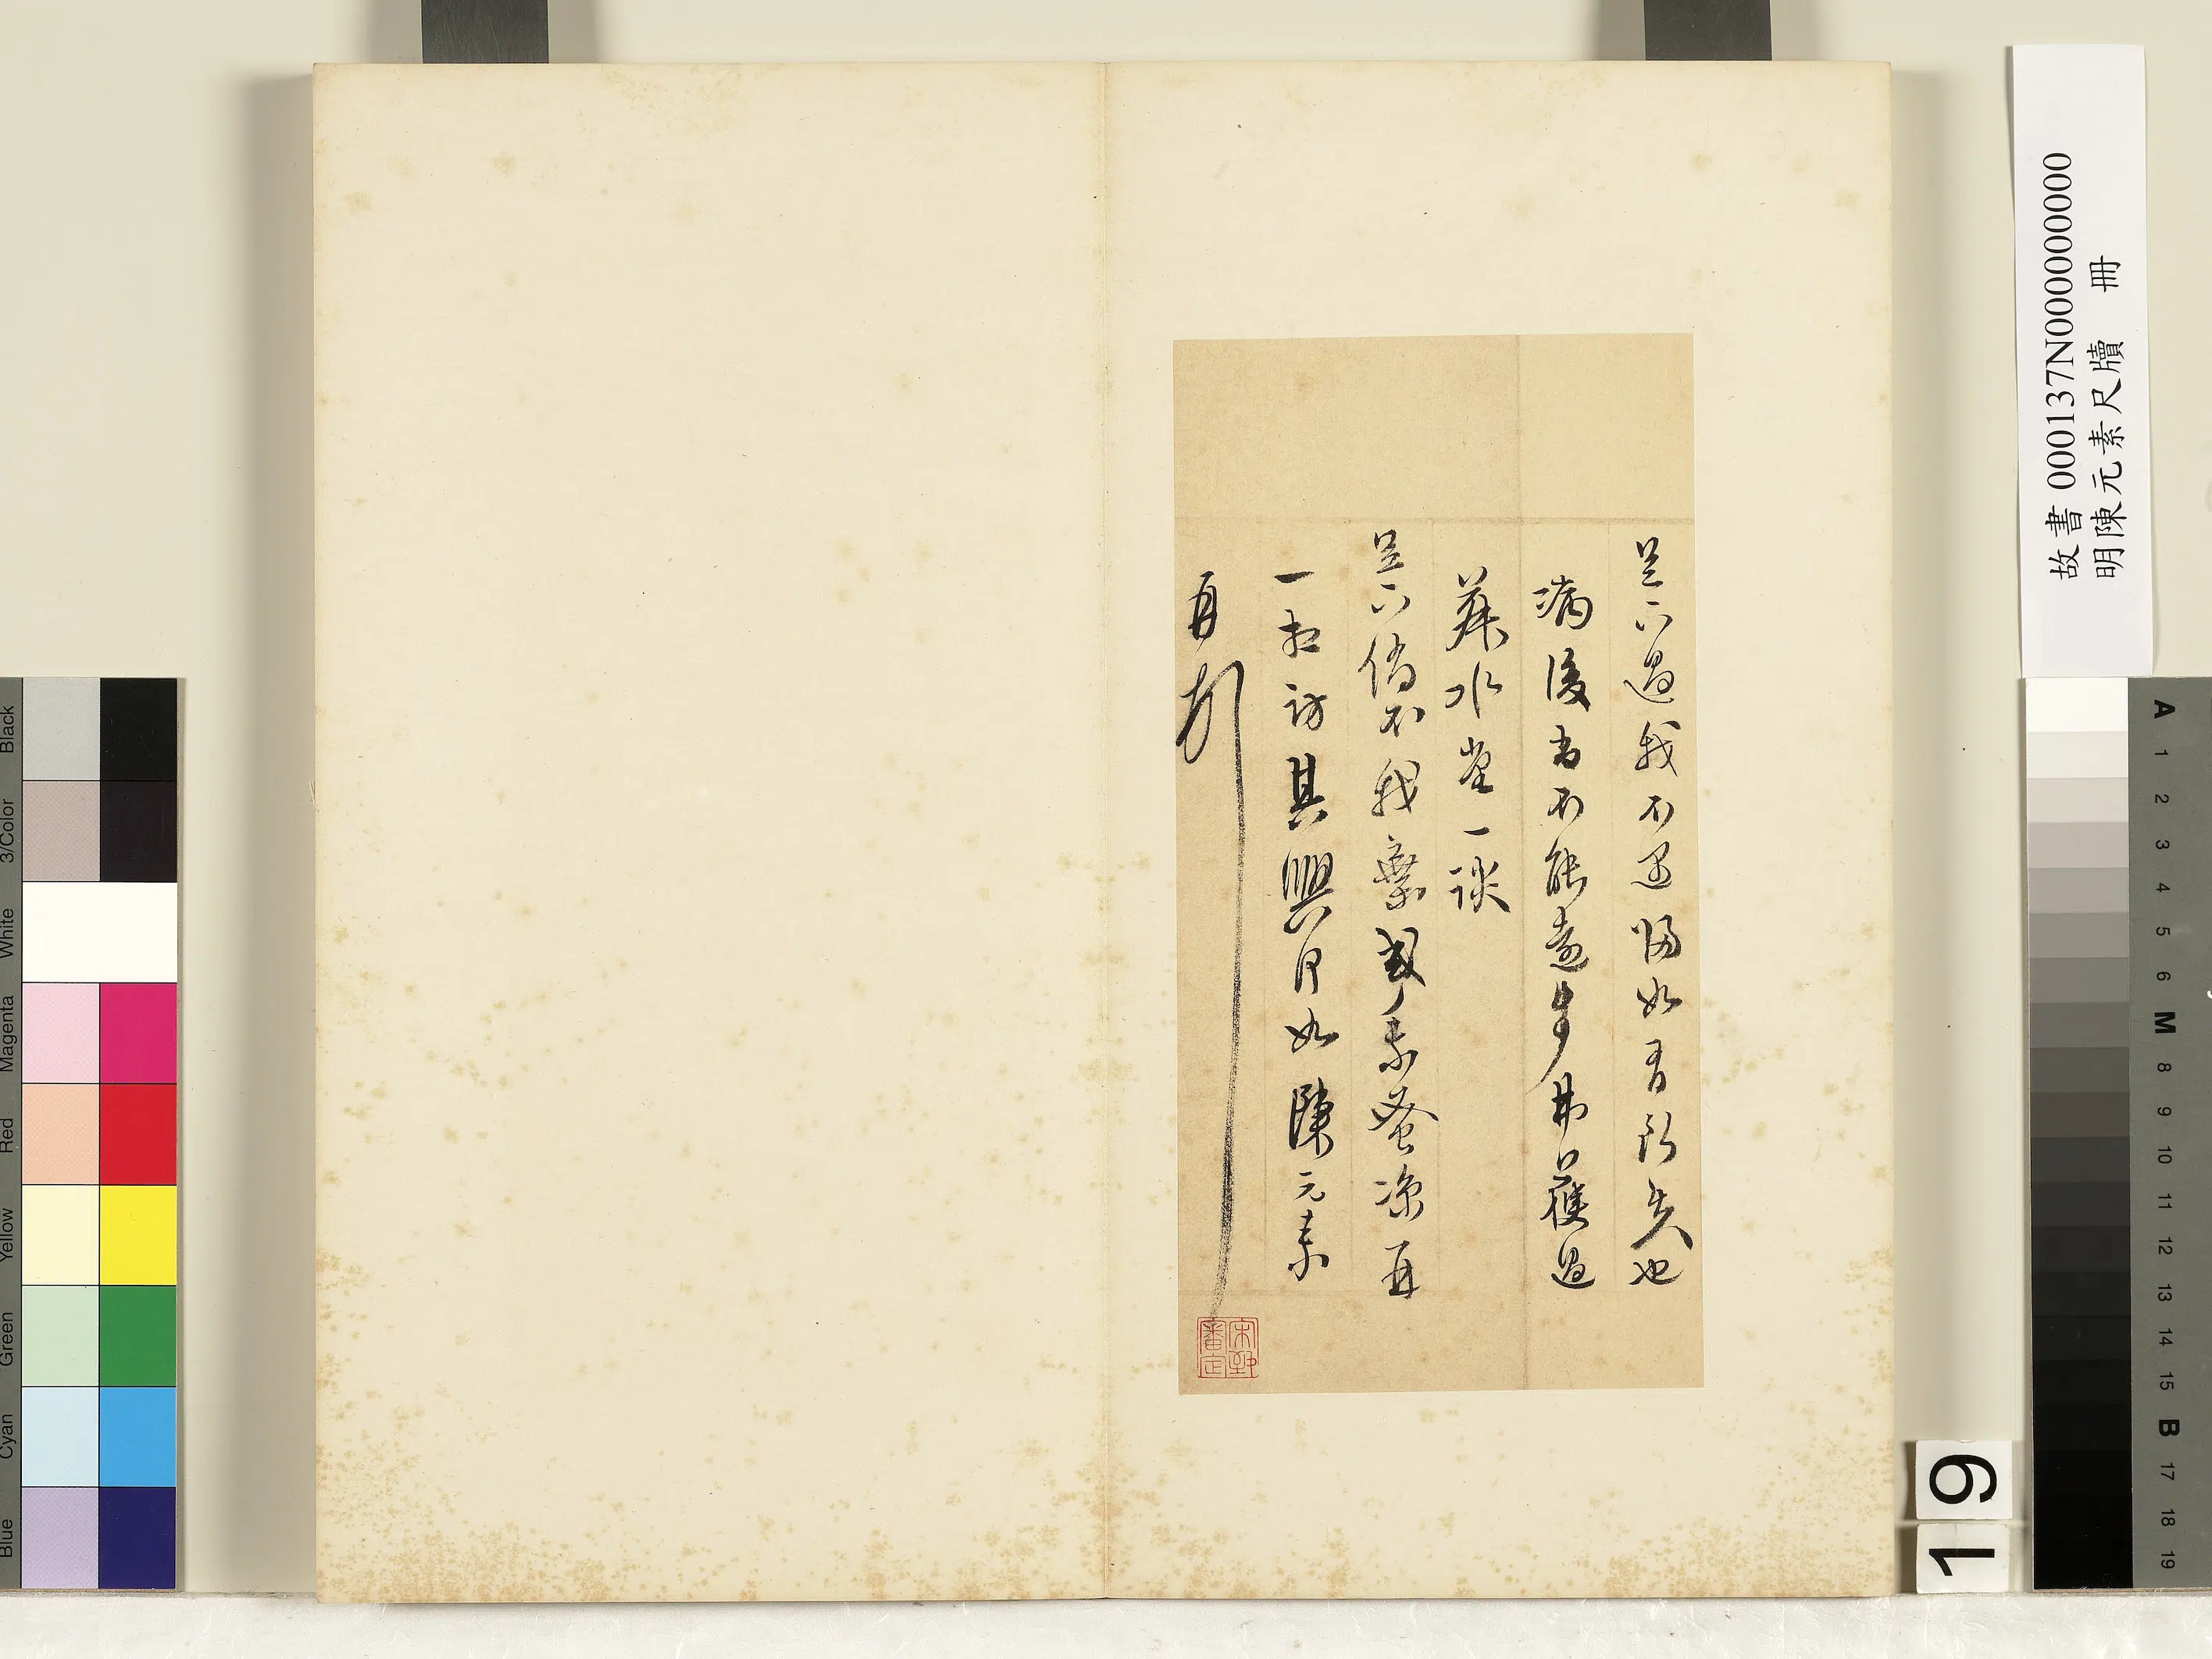 足下過我不遇悵如有所失也
病後尚不能遠步弗獲過
葬水堂一談
足下倘不我棄或乘蚤涼再
一相訪其興何如陳元素
再頓
宋犖審定
故書 000137N000000000
明陳元素尺牘 冊
19
Blue
Cyan
Green
Yellow
Red
Magenta
White
3/Color
Black
A
1
2
3
4
5
6
M
8
9
10
11
12
13
14
15
B
17
18
19